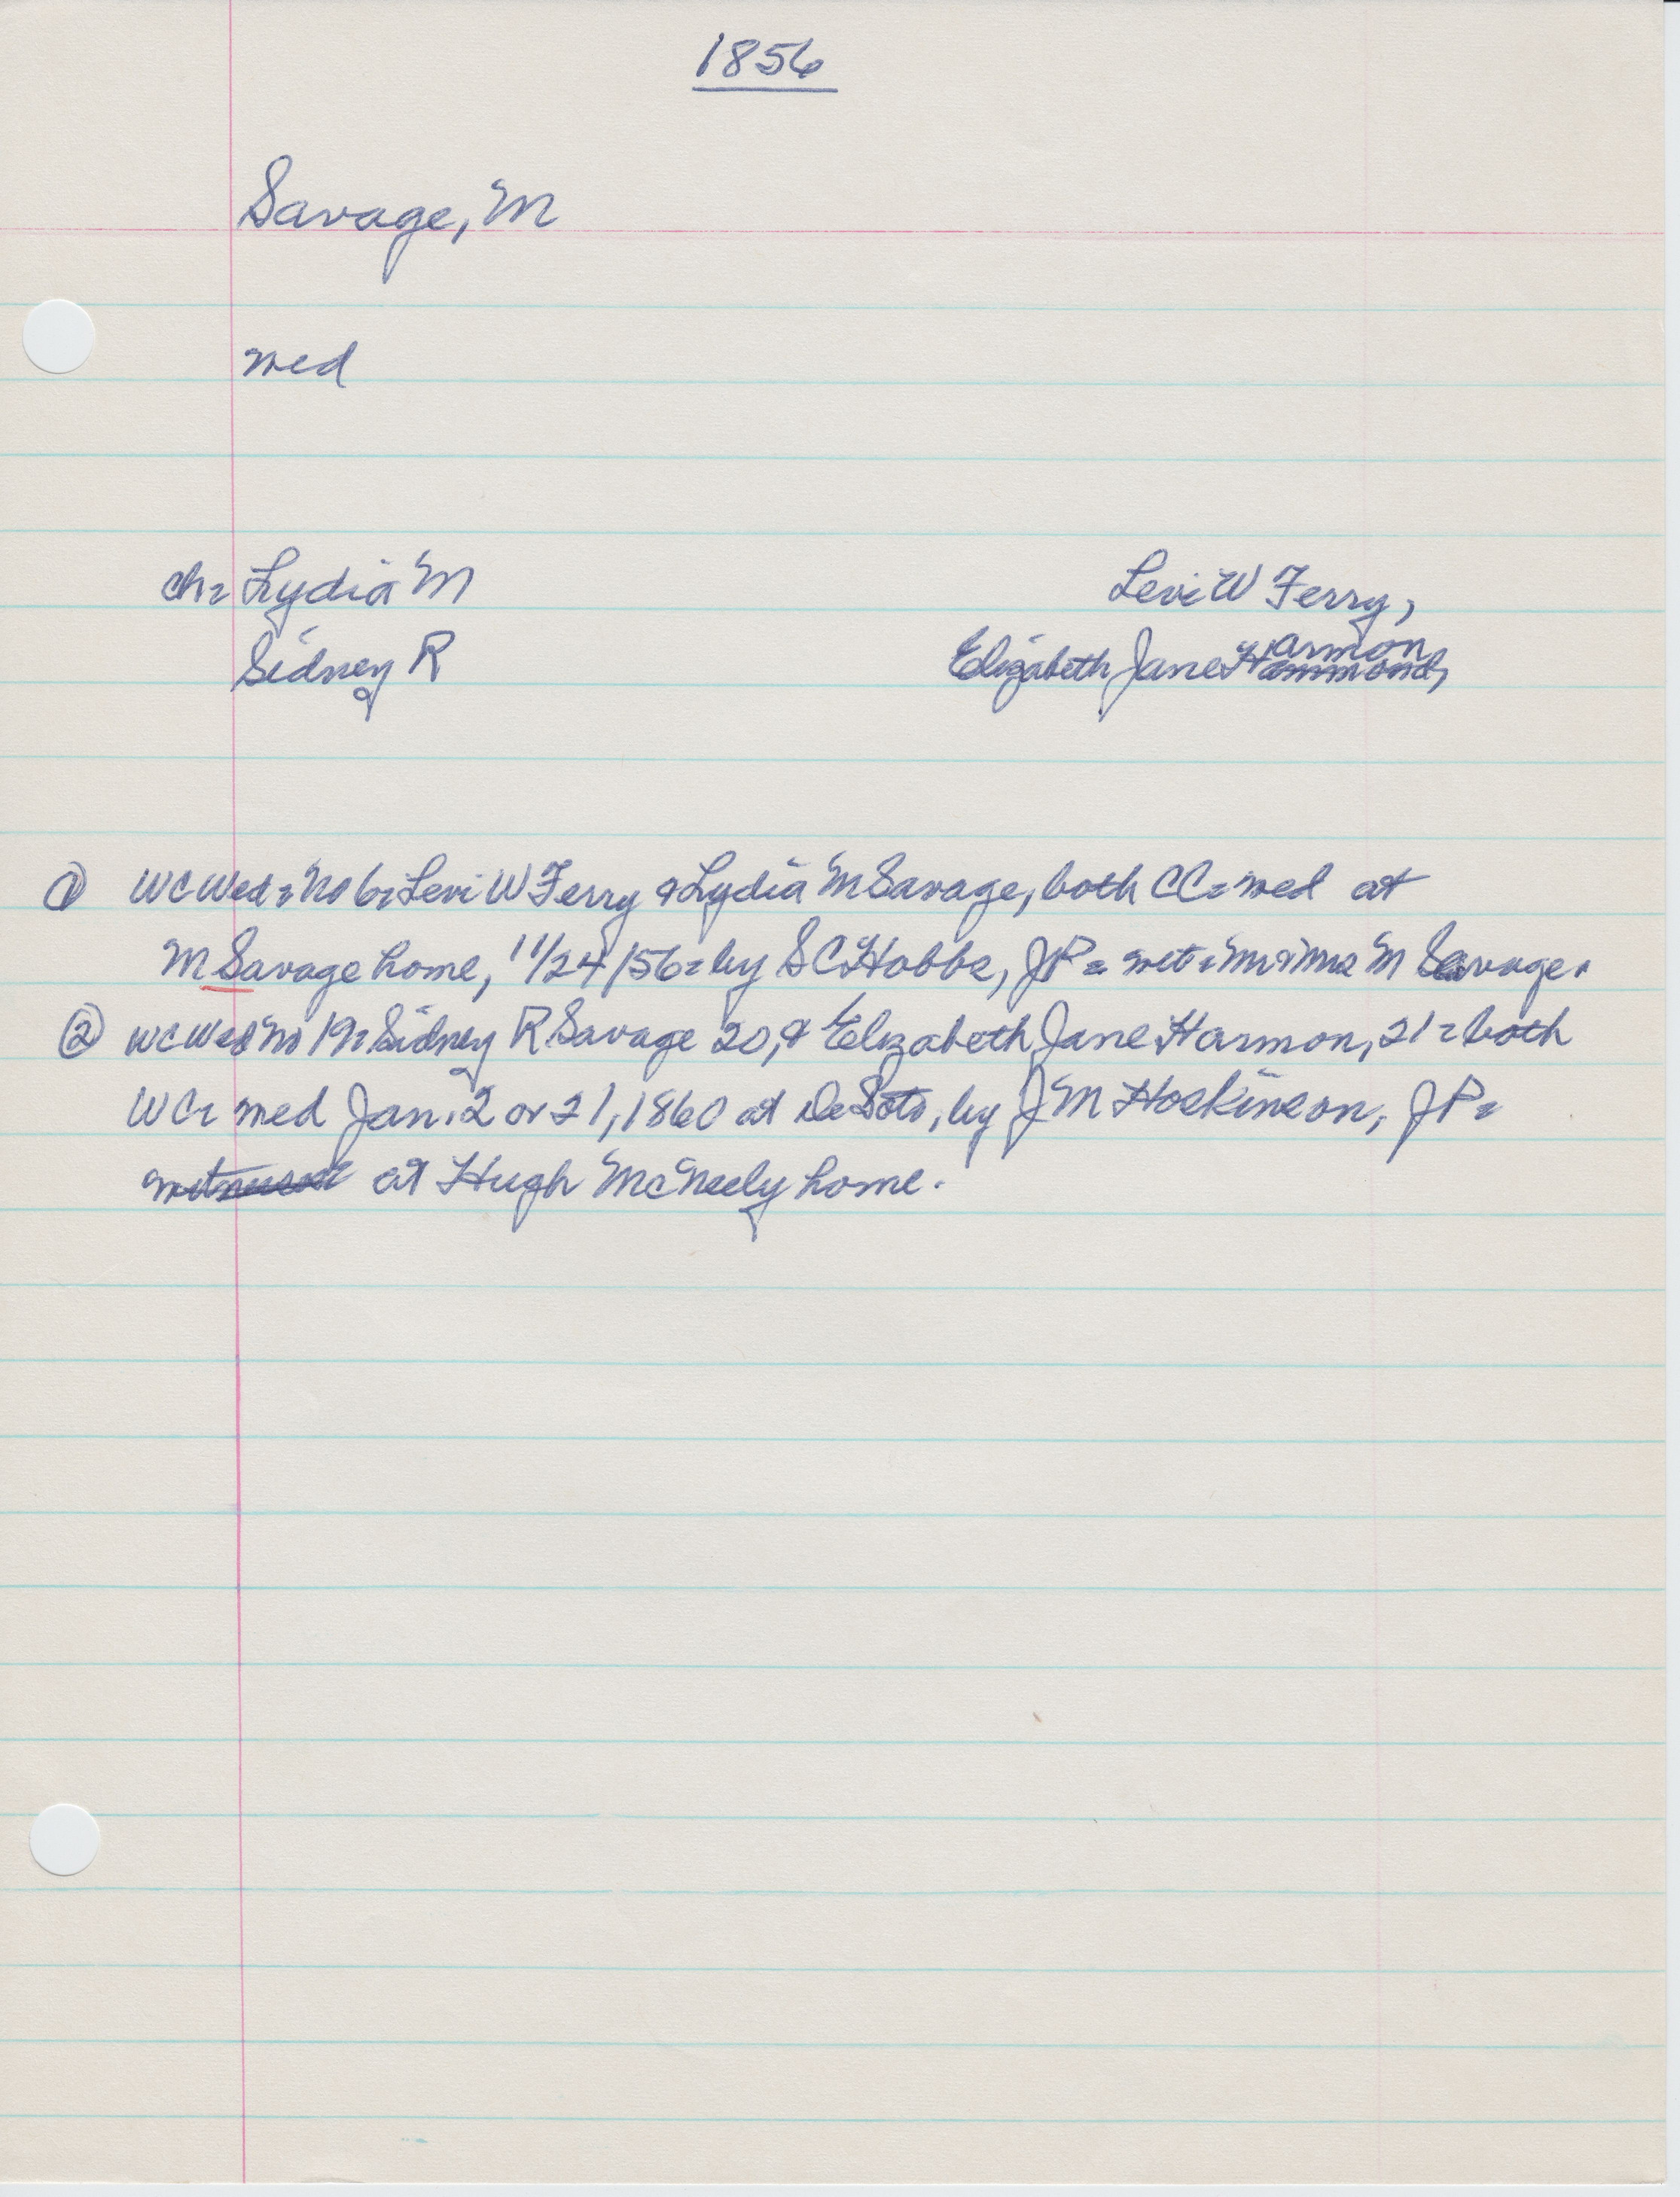 1856
Savage, M
wed
ch= Lydia M Levi W Ferry,
Sidney R Elizabeth Jane Harmon,
① WC Wed = No 6 = Levi W Ferry & Lydia M Savage, both CC = wed at
M Savage home, 11/24/56 = by S C Hobbs, JP = wit = Mr & Mrs M Savage.
② WC Wed No 19 = Sidney R Savage 20, & Elizabeth Jane Harmon, 21 = both
WC = wed Jan. 2 or 21, 1860 at DeSoto, by J M Hoskinson, JP =
at Hugh McNeely home.